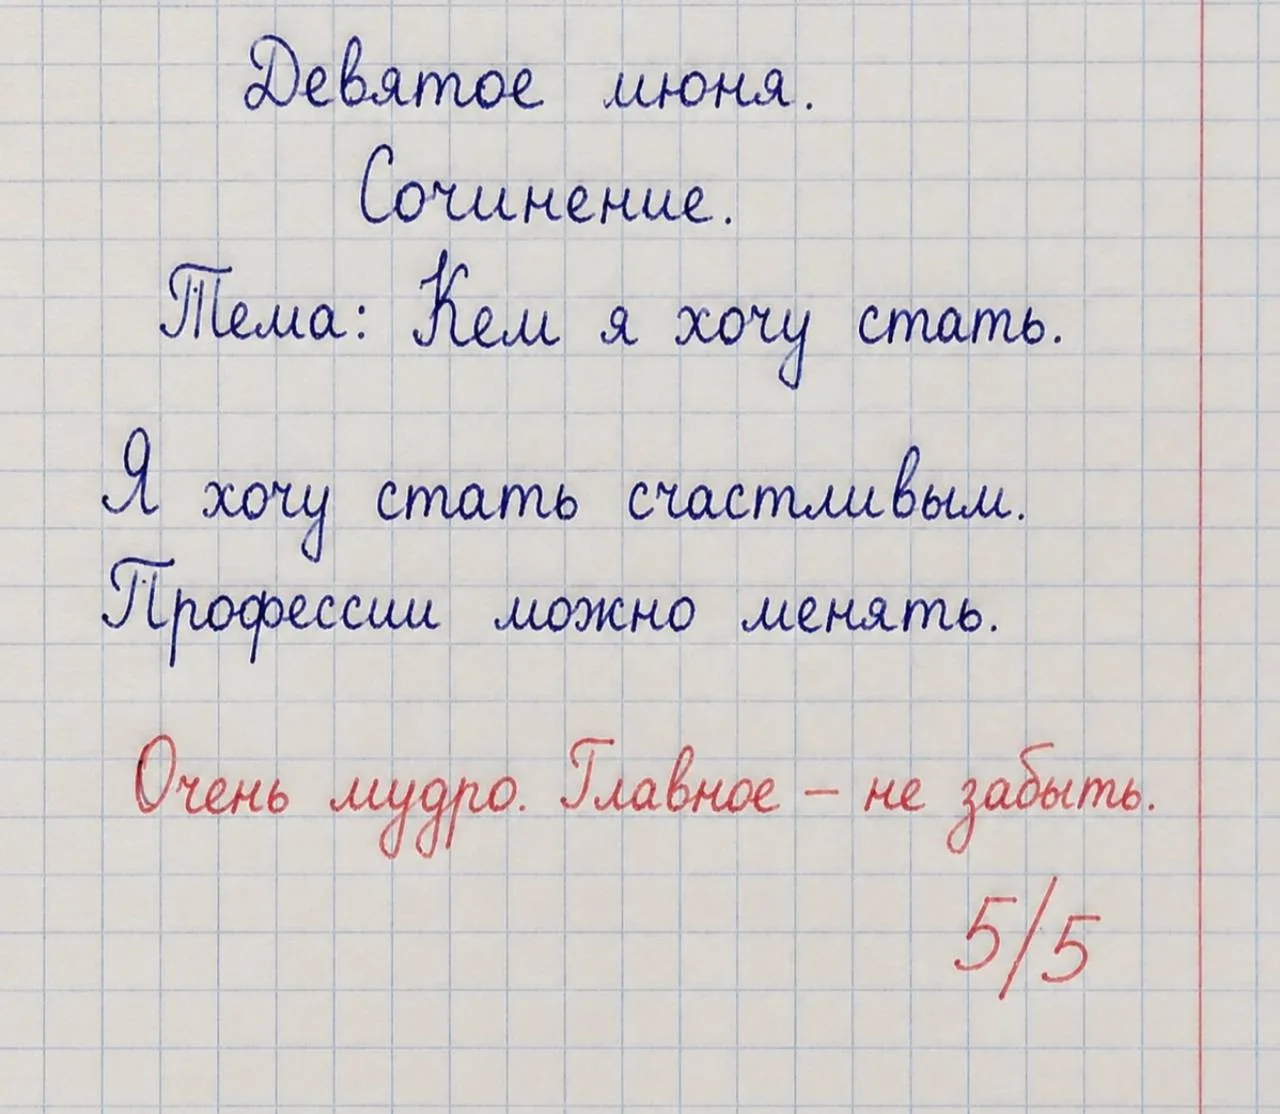 Девятое июня.
Сочинение.
Тема: Кем я хочу стать.
Я хочу стать счастливым.
Профессии можно менять.
Очень мудро. Главное – не забыть.
5/5